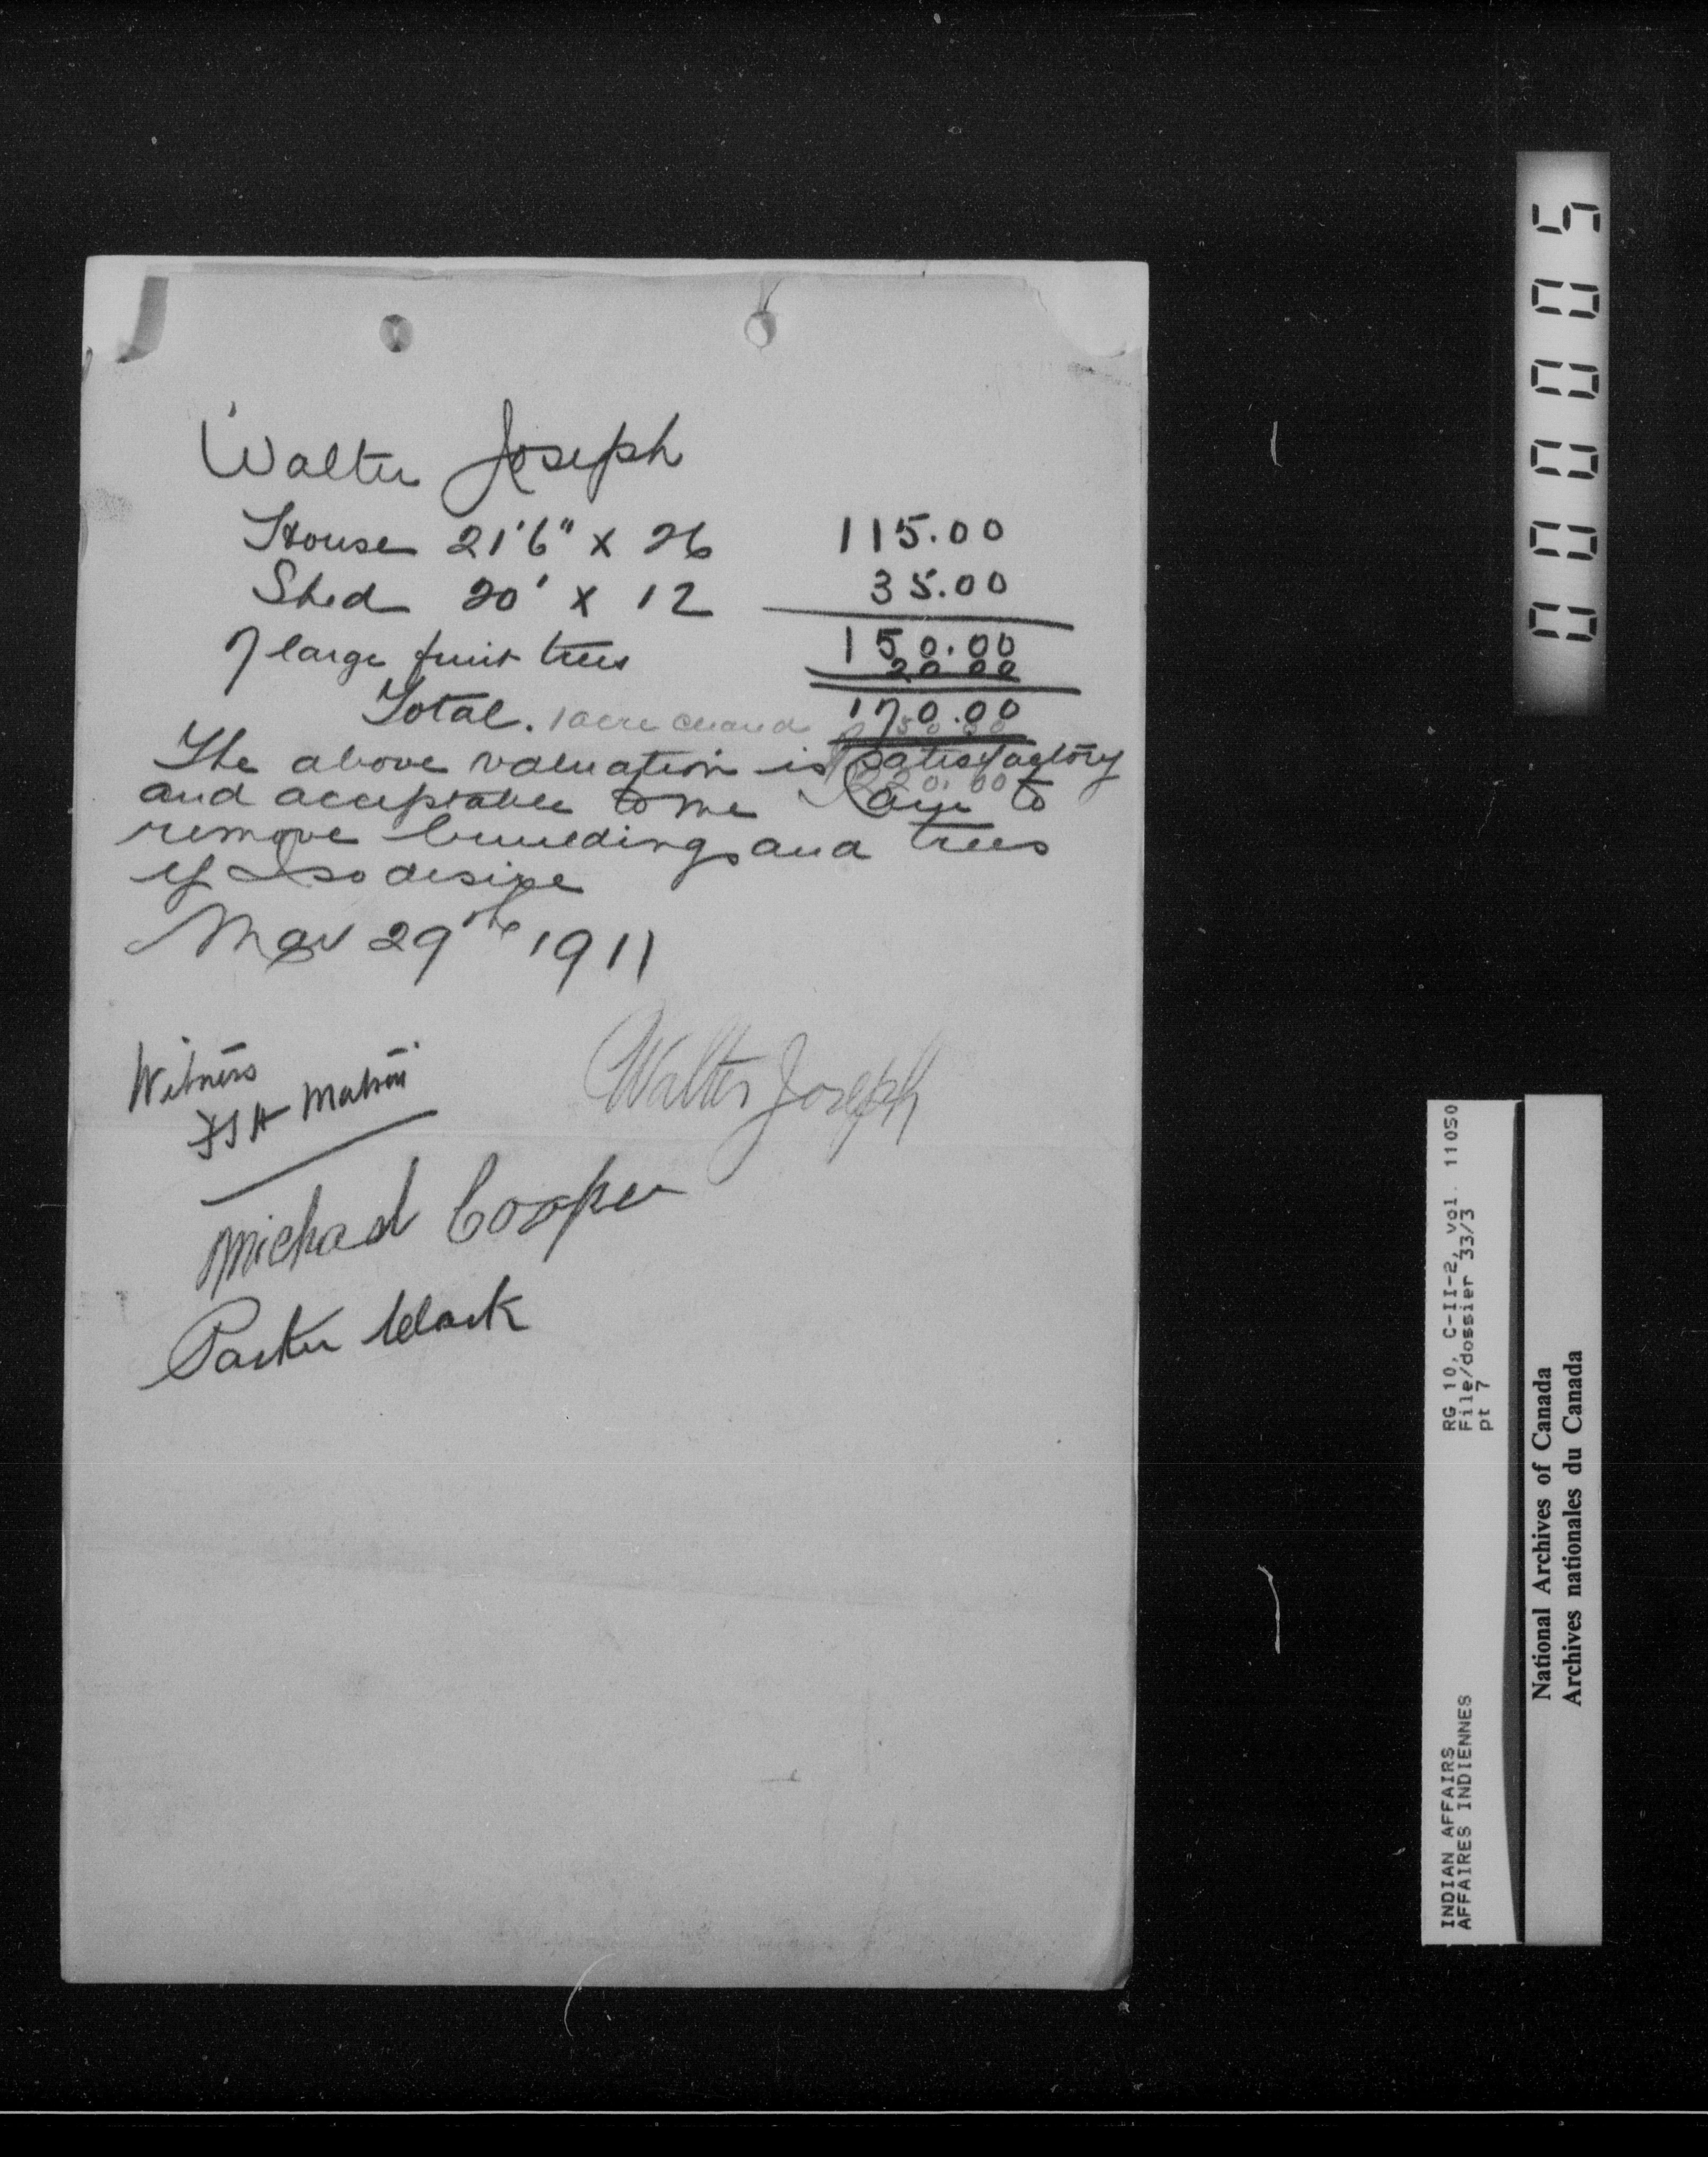 Walter Joseph
House 21'6" x 26 115.00
Shed 20' x 12 35.00
150.00
7 large fruit trees 20.00
Total. 170.00
1 acre cleared 50.00
The above valuation is satisfactory
220.00
and acceptable to me I am to
remove buildings and trees
if I so desire
Mar 29th 1911
Witness
Walter Joseph
Michael Cooper
Parker Clark
000005
RG 10, C-II-2, vol. 11050
File/dossier 33/3
pt 7
INDIAN AFFAIRS
AFFAIRES INDIENNES
National Archives of Canada
Archives nationales du Canada